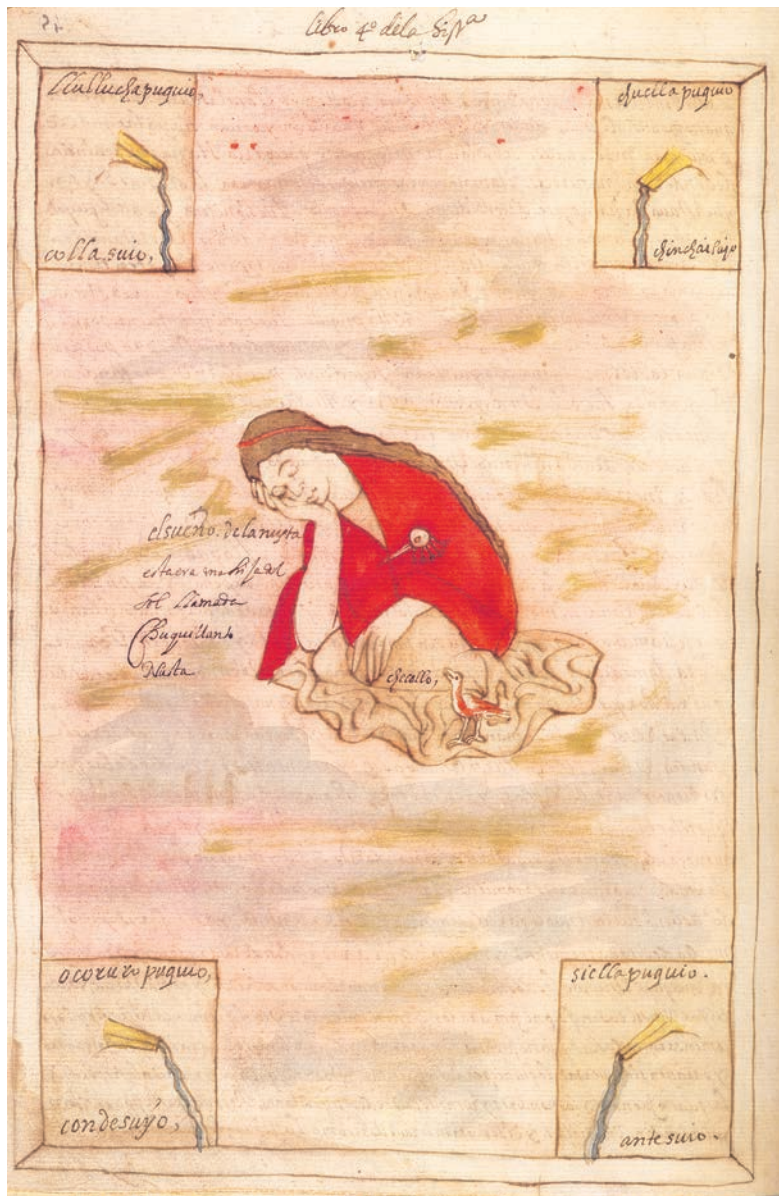 libro 4º dela hisṱª
45
llulluchapuquio,
colla suio,
chuellapuquio
chinchaisuyo
el sueño. de la nusta
esta era una hija del
sol llamada
Chuquillanto
Nusta
checollo,
ocoruro puquio,
condesuyo,
siellapuquio.
ante suio.